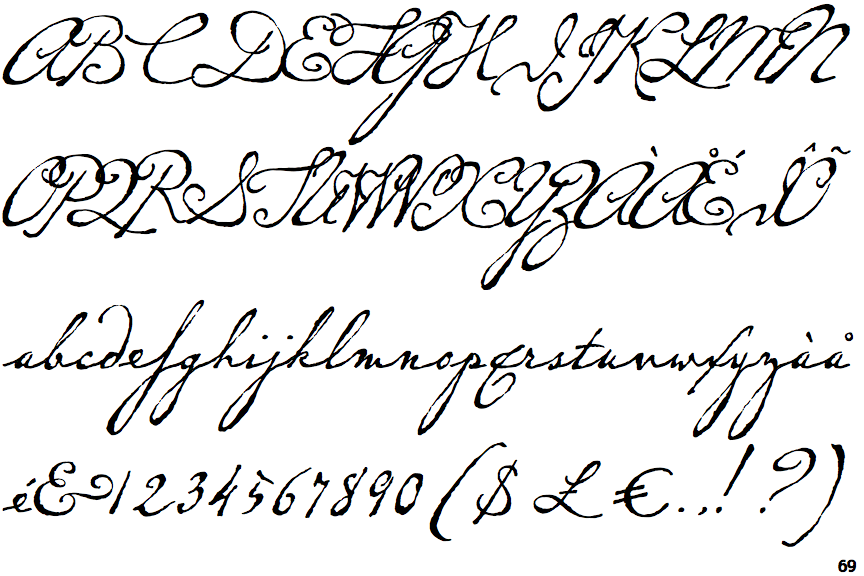 ABCDEFGHIJKLMN
OPQRSTUVWXYZÀÅÉÎÕ
abcdefghijklmnopqrstuvwxyzàå
é&1234567890($£€.,!?)
69